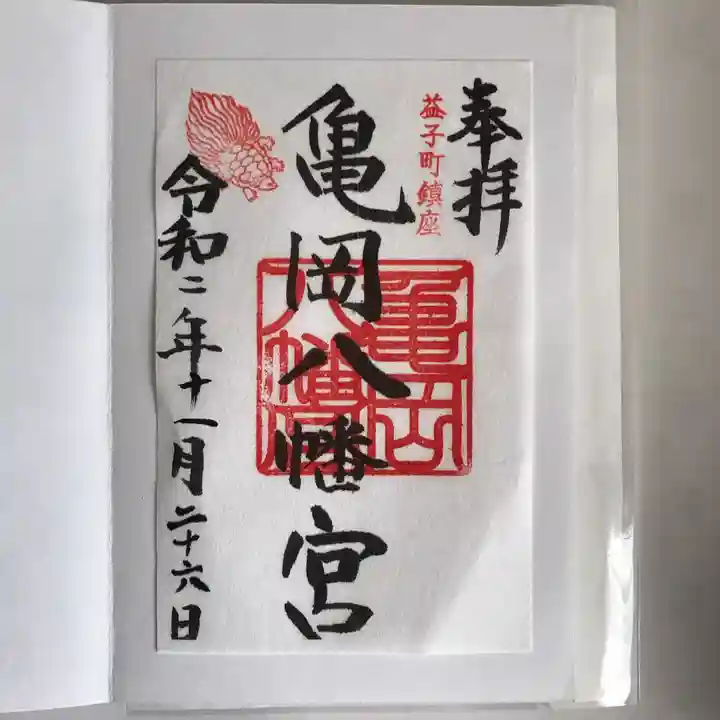 奉拝
益子町鎮座
亀岡八幡宮
亀岡
八幡
令和二年十一月二十六日